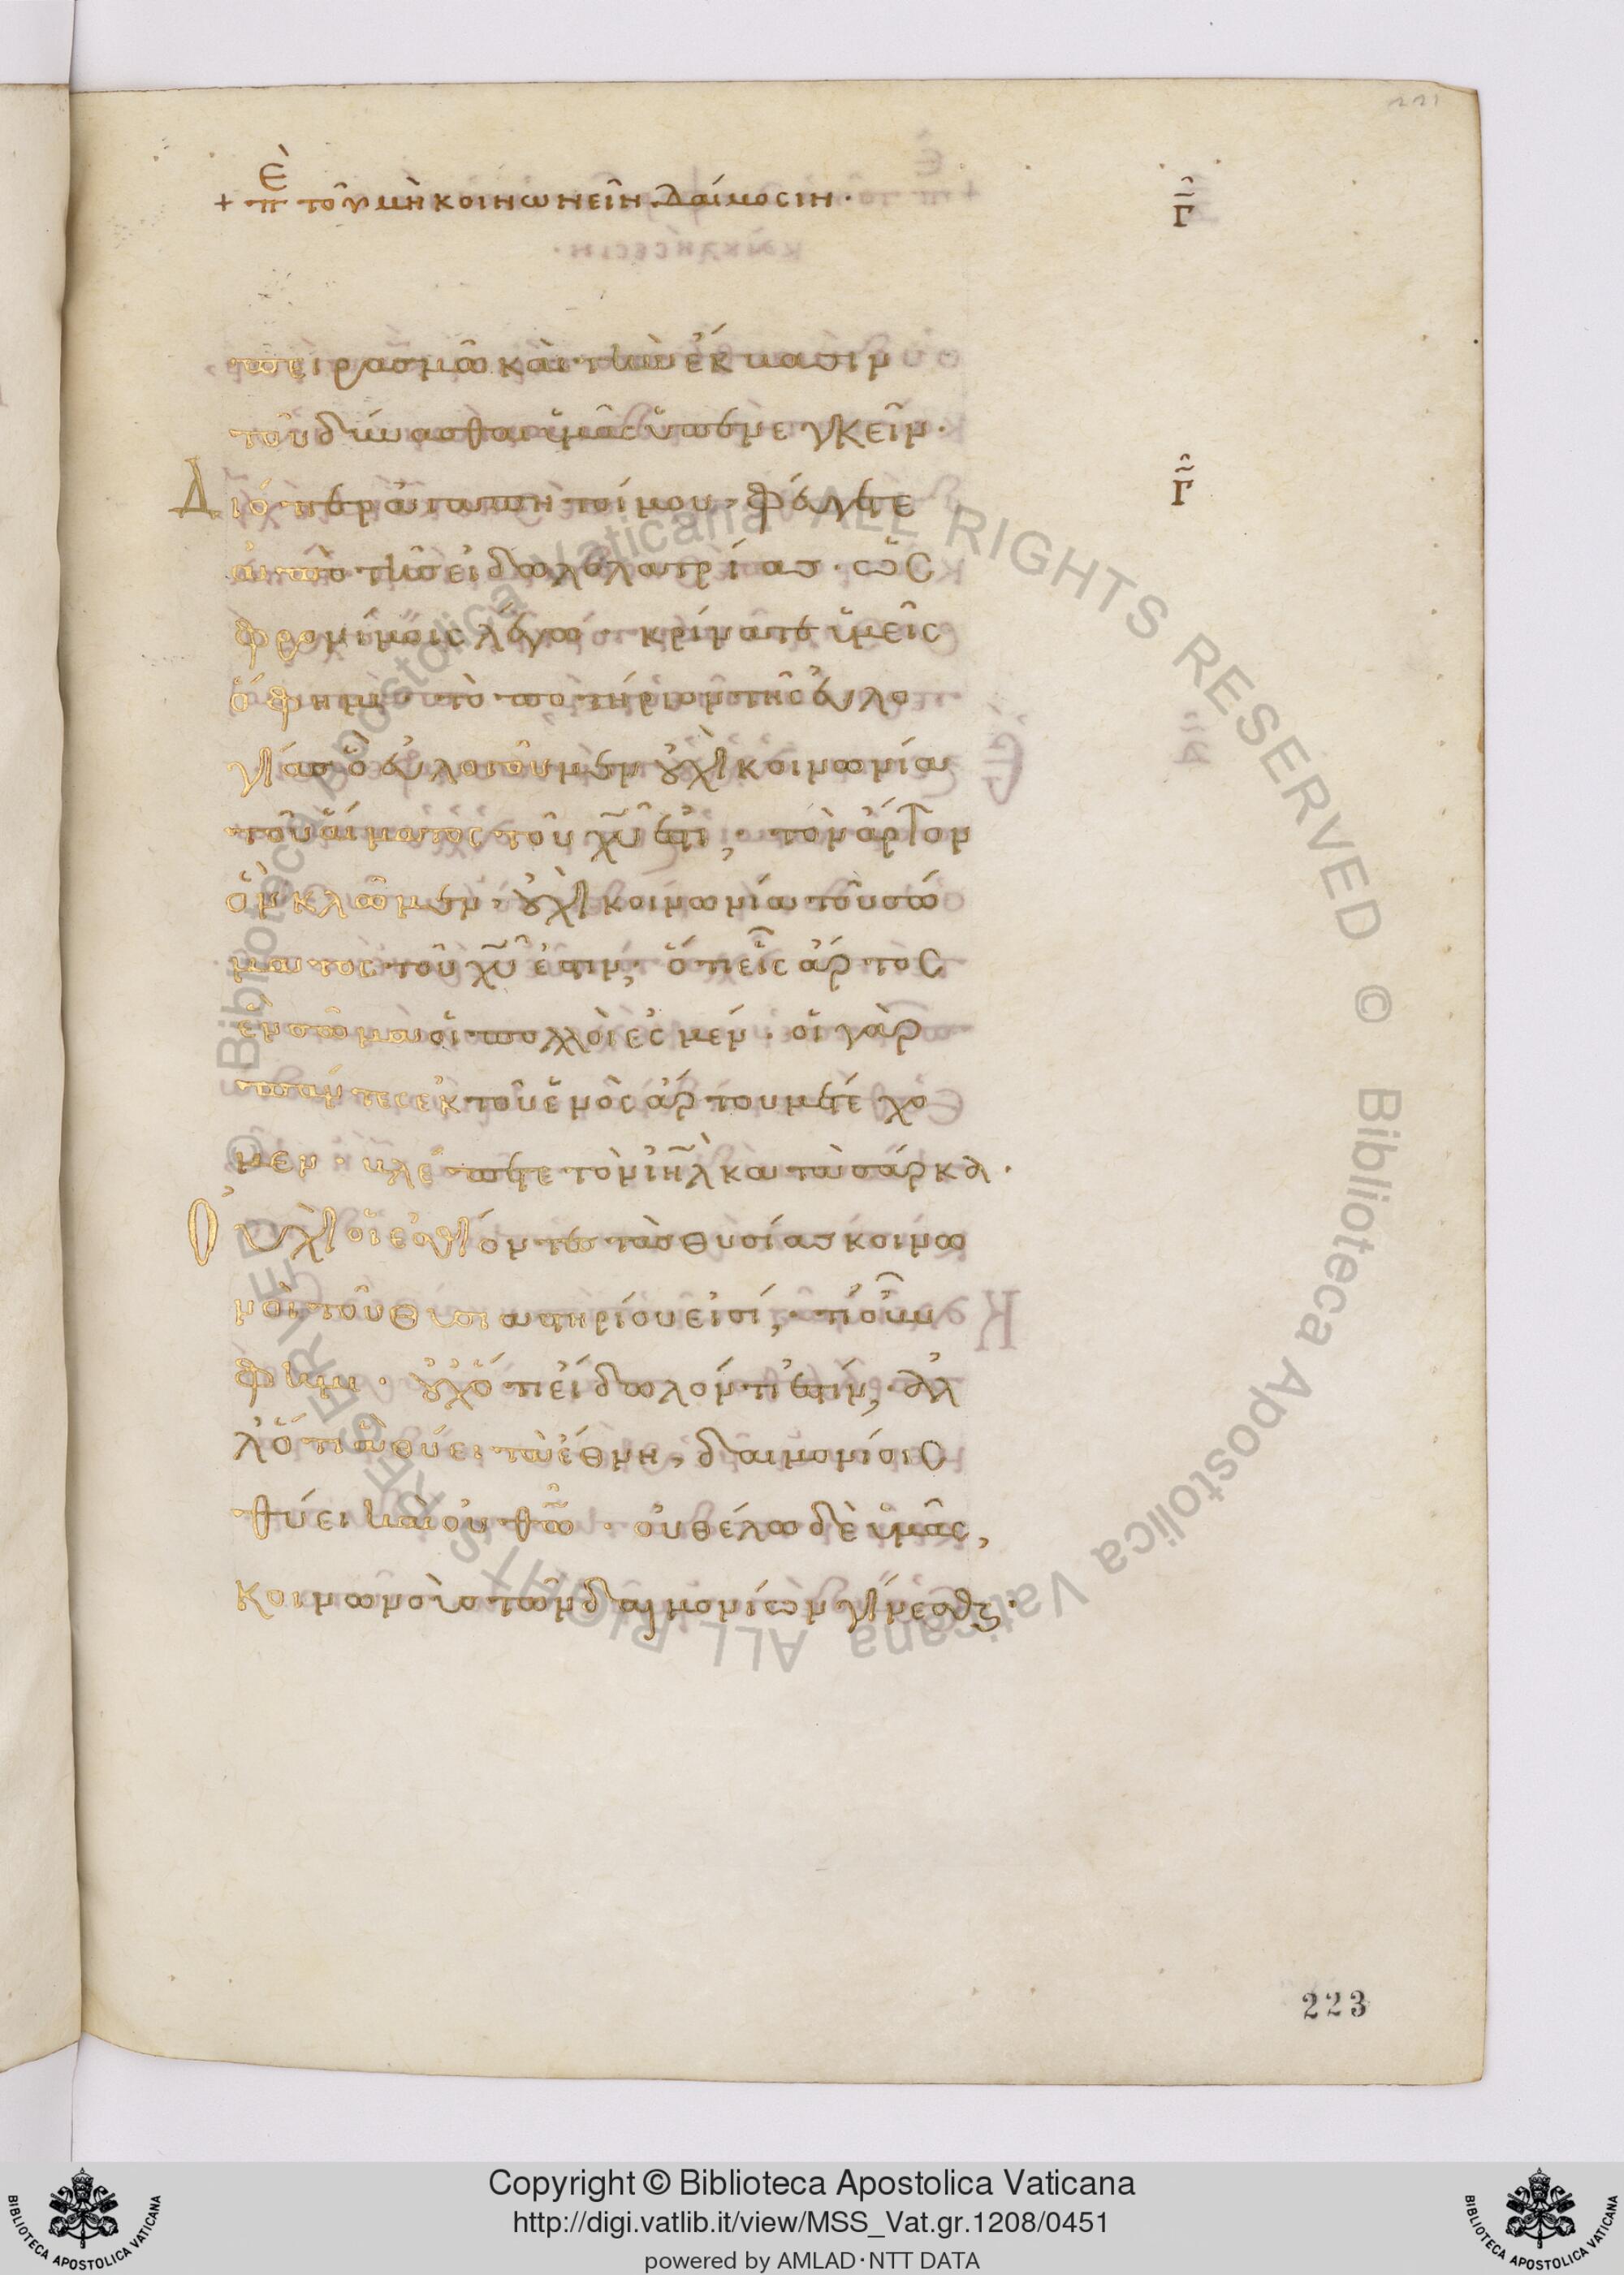 221
+ Ἐπ τοῦ μὴ κοινωνεῖν δαίμοσιν · Γ
πειρασμῶ καὶ τὴν ἔκβασιν
τοῦ δύνασθαι ὑμᾶς ὑπενεγκεῖν ·
Διόπερ ἀγαπητοί μου · φεύγετε Γ
ἀπὸ τῆς εἰδωλολατρίας · ὡς
φρονίμοις λέγω · κρίνατε ὑμεῖς
ὅ φημι · τὸ ποτήριον τῆς εὐλο
γίας ὃ εὐλογοῦμεν οὐχὶ κοινωνία
τοῦ αἵματος τοῦ χυ ἐστι, · τὸν ἄρτον
ὃν κλῶμεν · οὐχὶ κοινωνία τοῦ σώ
ματος τοῦ χυ ἐστιν; ὅτι εἷς ἄρτος
ἓν σῶμα οἱ πολλοὶ ἐσμέν · οἱ γὰρ
πάντες ἐκ τοῦ ἑνὸς ἄρτου μετέχο
μεν · βλέπετε τὸν ιηλ κατὰ σάρκα ·
Οὐχὶ οἱ ἐσθίοντες τὰς θυσίας κοινω
νοὶ τοῦ θυσιαστηρίου εἰσί, · τί οὖν
φημι · οὐχ ὅτι εἴδωλόν τι ἐστιν, · ἀλ
λ' ὅτι ἃ θύει τὰ ἔθνη, δαιμονίοις
θύει καὶ οὐ θω · οὐ θέλω δὲ ὑμᾶς,
κοινωνοὺς τῶν δαιμονίων γίνεσθαι ·
223
© Biblioteca Apostolica Vaticana ALL RIGHTS RESERVED © Biblioteca Apostolica Vaticana ALL RIGHTS RESERVED
BIBLIOTECA APOSTOLICA VATICANA
Copyright © Biblioteca Apostolica Vaticana
http://digi.vatlib.it/view/MSS_Vat.gr.1208/0451
powered by AMLAD·NTT DATA
BIBLIOTECA APOSTOLICA VATICANA